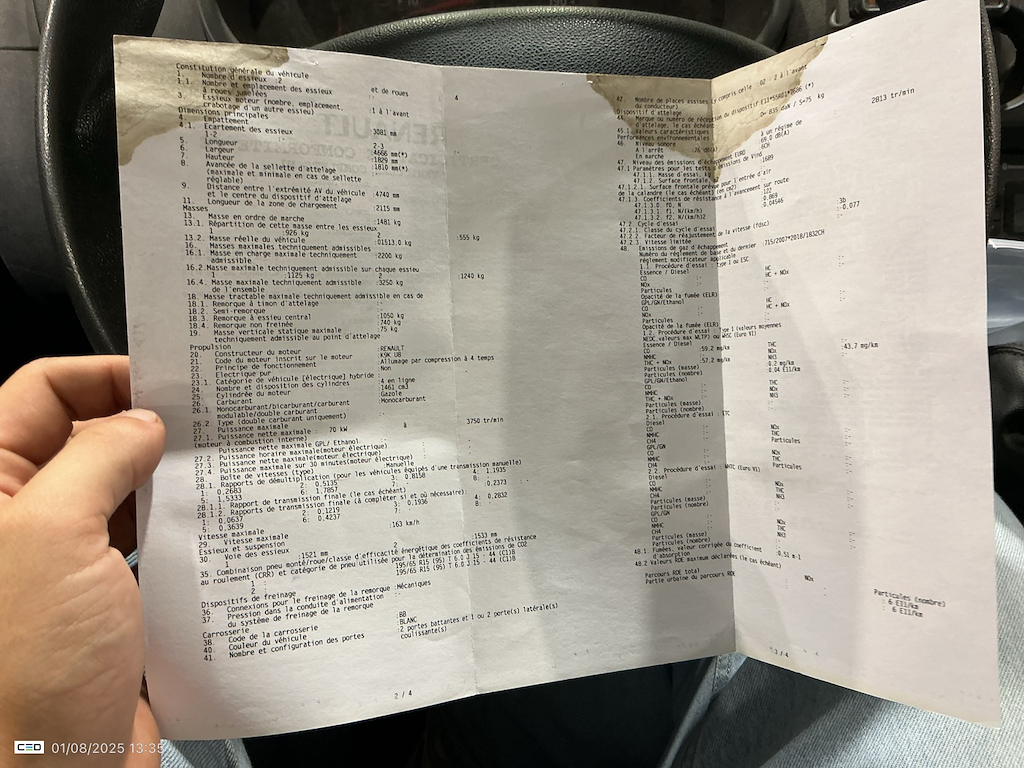 Constitution générale du véhicule
1. Nombre d'essieux :2 et de roues 4
1.1. Nombre et emplacement des essieux
à roues jumelées
3. Essieux moteur (nombre, emplacement, :1 à l'avant
crabotage d'un autre essieu)
Dimensions principales
4. Empattement :3081 mm
4.1. Ecartement des essieux
1-2 2-3
5. Longueur :4666 mm(*)
6. Largeur :1829 mm
7. Hauteur :1810 mm(*)
8. Avancée de la sellette d'attelage
(maximale et minimale en cas de sellette
réglable)
9. Distance entre l'extrémité AV du véhicule :4740 mm
et le centre du dispositif d'attelage
11. Longueur de la zone de chargement :2115 mm
Masses
13. Masse en ordre de marche :1481 kg
13.1. Répartition de cette masse entre les essieux
1 :926 kg 2 :555 kg
13.2. Masse réelle du véhicule :01513.0 kg
16. Masses maximales techniquement admissibles
16.1. Masse en charge maximale techniquement :2200 kg
admissible
16.2.Masse maximale techniquement admissible sur chaque essieu
1 :1125 kg 2 :1240 kg
16.4. Masse maximale techniquement admissible :3250 kg
de l'ensemble
18. Masse tractable maximale techniquement admissible en cas de
18.1. Remorque à timon d'attelage
18.2. Semi-remorque
18.3. Remorque à essieu central :1050 kg
18.4. Remorque non freinée :740 kg
19. Masse verticale statique maximale :75 kg
techniquement admissible au point d'attelage
Propulsion
20. Constructeur du moteur :RENAULT
21. Code du moteur inscrit sur le moteur :K9K U8
22. Principe de fonctionnement :Allumage par compression à 4 temps
23. Electrique pur :Non
23.1. Catégorie de véhicule [électrique] hybride
24. Nombre et disposition des cylindres :4 en ligne
25. Cylindrée du moteur :1461 cm3
26. Carburant :Gazole
26.1. Monocarburant/bicarburant/carburant :Monocarburant
modulable/double carburant
26.2. Type (double carburant uniquement)
27. Puissance maximale
27.1. Puissance nette maximale : 70 kW à 3750 tr/min
(moteur à combustion interne)
Puissance nette maximale GPL/ Ethanol
27.2. Puissance horaire maximale(moteur électrique)
27.3. Puissance nette maximale(moteur électrique)
27.4 Puissance maximale sur 30 minutes(moteur électrique)
28. Boîte de vitesses (type) :Manuelle
28.1. Rapports de démultiplication (pour les véhicules équipés d'une transmission manuelle)
1: 0.2683 2: 0.5135 3: 0.8158 4: 1.1935
5: 1.5333 6: 1.7857 7: 8:
28.1.1. Rapport de transmission finale (le cas échéant) : 0.2373
28.1.2. Rapports de transmission finale (à compléter si et où nécessaire):
1: 0.0637 2: 0.1219 3: 0.1936 4: 0.2832
5: 0.3639 6: 0.4237 7: 8:
Vitesse maximale
29. Vitesse maximale :163 km/h
Essieux et suspension
30. Voie des essieux
1 :1521 mm 2 :1533 mm
35. Combinaison pneu monté/roue/classe d'efficacité énergétique des coefficients de résistance
au roulement (CRR) et catégorie de pneu utilisée pour la détermination des émissions de CO2
1 : 195/65 R15 (95) T 6.0 J 15 - 44 (C1)B
2 : 195/65 R15 (95) T 6.0 J 15 - 44 (C1)B
Dispositifs de freinage
36. Connexions pour le freinage de la remorque :Mécaniques
37. Pression dans la conduite d'alimentation
du système de freinage de la remorque
Carrosserie
38. Code de la carrosserie :BB
40. Couleur du véhicule :BLANC
41. Nombre et configuration des portes :2 portes battantes et 1 ou 2 porte(s) latérale(s)
coulissante(s)
2 / 4
42. Nombre de places assises (y compris celle :02 : 2 à l'avant
du conducteur)
Dispositif d'attelage
44. Marque ou numéro de réception du dispositif
d'attelage, le cas échéant
45.1. Valeurs caractéristiques D= 835 daN / S=75 kg
Performances environnementales
46. Niveau sonore
A l'arrêt :76 dB(A) à un régime de 2813 tr/min
En marche 69.0 dB(A)
47. Niveau des émissions d'échappement EURO :6CH
47.1 Paramètres pour les tests d'émissions de Vind
47.1.1. Masse d'essai :1689
47.1.2. Surface frontale
47.1.2.1. Surface frontale prévue pour l'entrée d'air
de la calandre (le cas échéant) (en cm2)
47.1.3. Coefficients de résistance à l'avancement sur route
47.1.3.0. f0, N :122
47.1.3.1. f1, N/(km/h) 0.869
47.1.3.2. f2, N/(km/h)2 0.04546
47.2. Cycle d'essai
47.2.1. Classe du cycle d'essai :3b
47.2.2. Facteur de réajustement de la vitesse (fdsc) :-0.077
47.2.3. Vitesse limitée
48. Emissions de gaz d'échappement
Numéro du règlement de base et du dernier :715/2007*2018/1832CH
règlement modificateur applicable
1.1. Procédure d'essai : type I ou ESC
Essence / Diesel
CO HC
NOx HC + NOx
Particules
Opacité de la fumée (ELR)
GPL/GN/Ethanol
CO HC
NOx HC + NOx
Particules
Opacité de la fumée (ELR)
1.2. Procédure d'essai : type 1 (valeurs moyennes
NEDC, valeurs max WLTP) ou WHSC (Euro VI)
Essence / Diesel
CO :59.2 mg/km THC
NMHC NOx :43.7 mg/km
THC + NOx :57.2 mg/km NH3
Particules (masse) 0.2 mg/km
Particules (nombre) 0.04 E11/km
GPL/GN/Ethanol
CO THC
NMHC NOx
THC + NOx NH3
Particules (masse)
Particules (nombre)
2.1. Procédure d'essai : ETC
Diesel
CO NOx
NMHC THC
CH4 Particules
GPL/GN
CO NOx
NMHC THC
CH4 Particules
2.2. Procédure d'essai : WHTC (Euro VI)
Diesel
CO NOx
NMHC THC
CH4 NH3
Particules (masse)
Particules (nombre)
GPL/GN
CO NOx
NMHC THC
CH4 NH3
Particules (masse)
Particules (nombre)
48.1 Fumées, valeur corrigée du coefficient :0.51 m-1
d'absorption
48.2 Valeurs RDE maximum déclarées (le cas échéant)
NOx Particules (nombre)
Parcours RDE total : 6 E11/km
Partie urbaine du parcours RDE : 6 E11/km
3 / 4
CEO 01/08/2025 13:35